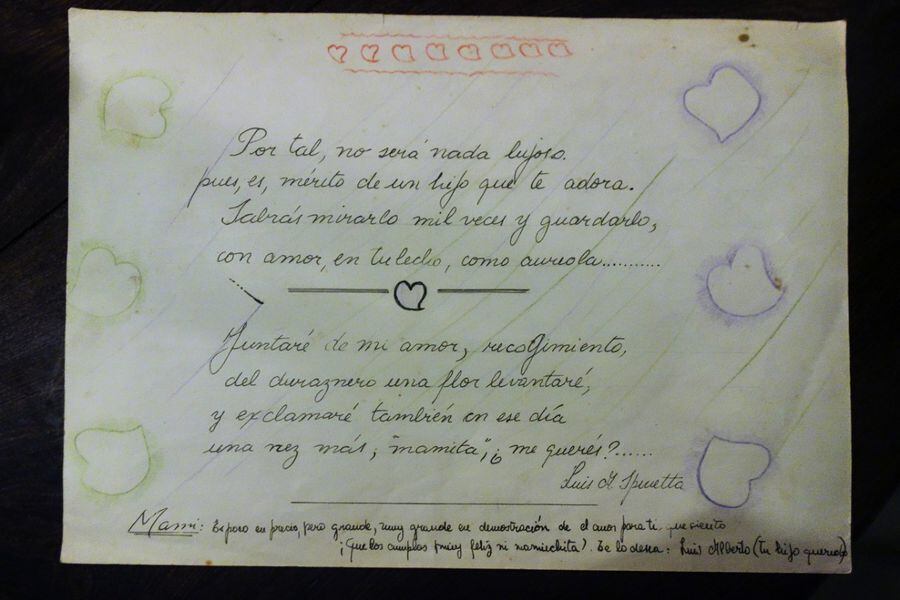 Por tal, no será nada lujoso.
pues, es, mérito de un hijo que te adora.
Sabrás mirarlo mil veces y guardarlo,
con amor, en tu lecho, como aureola...........
Juntaré de mi amor, recogimiento,
del duraznero una flor levantaré,
y exclamaré también en ese día
una vez más, "mamita", ¿me querés?......
Luis A. Spinetta
Mami: Es poco en precio, pero grande, muy grande en demostración de el amor para ti que siento
¡Que los cumplas muy feliz mi mamichita! Te lo desea: Luis Alberto (tu hijo querido)